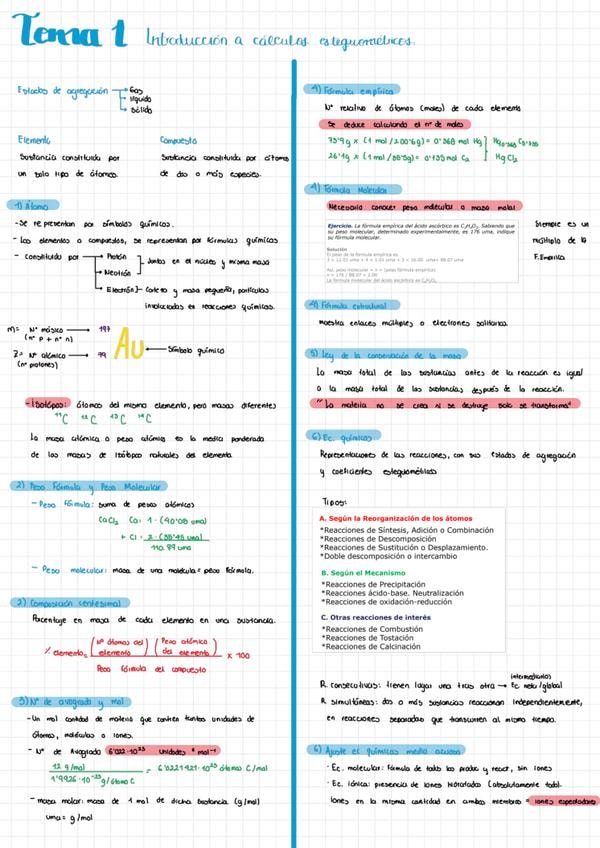 Tema 1 Introducción a cálculos estequiométricos.
Estados de agregación
Gas
líquido
Sólido
Elemento
Sustancia constituida por
un solo tipo de átomos.
Compuesto
Sustancia constituida por átomos
de dos o más especies.
1) Átomo
-Se representan por símbolos químicos.
- Los elementos o compuestos, se representan por fórmulas químicas
- Constituido por
Protón
Neutrón
Juntos en el núcleo y misma masa
Electrón
y masa pequeña, partículas
involucradas en reacciones químicas.
M= Nº másico → 197
(nº p + nº n)
Z= Nº atómico → 79
(nº protones)
Au ← Símbolo químico
- Isótopos: átomos del mismo elemento, pero masas diferentes
¹¹C ¹²C ¹³C ¹⁴C
La masa atómica o peso atómico es la media ponderada
de las masas de isótopos naturales del elemento.
2) Peso Fórmula y Peso Molecular
- Peso fórmula: suma de pesos atómicos
CaCl₂ Ca: 1 · (40'08 uma)
+ Cl: 2 · (35'45 uma)
110.99 uma
- Peso molecular: masa de una molécula = peso fórmula.
2) Composición centesimal
Porcentaje en masa de cada elemento en una sustancia.
% elemento = (Nº átomos del elemento) (Peso atómico del elemento) x 100
Peso fórmula del compuesto
3) Nº de avogadro y mol
- Un mol cantidad de materia que contiene tantas unidades de
átomos, moléculas o iones.
- Nº de Avogadro 6'022·10²³ unidades · mol⁻¹
12 g/mol
1'9926·10⁻²³ g/átomo C
= 6'0221421·10²³ átomos C/mol
- masa molar: masa de 1 mol de dicha sustancia (g/mol)
uma = g/mol
4) Fórmula empírica
Nº relativo de átomos (moles) de cada elemento
Se deduce calculando el nº de moles
73'9g x (1 mol / 200'6g) = 0'368 mol Hg
26'1g x (1 mol / 35'5g) = 0'735 mol Cl
Hg₀.₃₆₈ Cl₀.₇₃₅
HgCl₂
4) Fórmula Molecular
Necesario conocer peso molecular o masa molar
Ejercicio. La fórmula empírica del ácido ascórbico es C₃H₄O₃. Sabiendo que
su peso molecular, determinado experimentalmente, es 176 uma, indique
su fórmula molecular.
Solución
El peso de la fórmula empírica es
3 × 12.01 uma + 4 × 1.01 uma + 3 × 16.00 uma= 88.07 uma
Así, peso molecular = n × (peso fórmula empírica)
n = 176 / 88.07 = 2.00
La fórmula molecular del ácido ascórbico es C₆H₈O₆
Siempre es un
múltiplo de la
F. Empírica
4) Fórmula estructural
muestra enlaces múltiples o electrones solitarios.
5) Ley de la conservación de la masa
La masa total de las sustancias antes de la reacción es igual
a la masa total de las sustancias después de la reacción.
"La materia no se crea ni se destruye solo se transforma"
6) Ec. químicas
Representaciones de las reacciones, con sus estados de agregación
y coeficientes estequiométricos
Tipos:
A. Según la Reorganización de los átomos
*Reacciones de Síntesis, Adición o Combinación
*Reacciones de Descomposición
*Reacciones de Sustitución o Desplazamiento.
*Doble descomposición o intercambio
B. Según el Mecanismo
*Reacciones de Precipitación
*Reacciones ácido-base. Neutralización
*Reacciones de oxidación-reducción
C. Otras reacciones de interés
*Reacciones de Combustión
*Reacciones de Tostación
*Reacciones de Calcinación
intermediarios
R. consecutivas: tienen lugar una tras otra → Ec. neta/global
R. simultáneas: dos o más sustancias reaccionan independientemente,
en reacciones separadas que transcurren al mismo tiempo.
6) Ajuste ec químicas medio acuoso
· Ec. molecular: fórmula de todos los produc y react, sin iones
· Ec. iónica: presencia de iones hidratados (absolutamente todo).
Iones en la misma cantidad en ambos miembros = iones espectadores